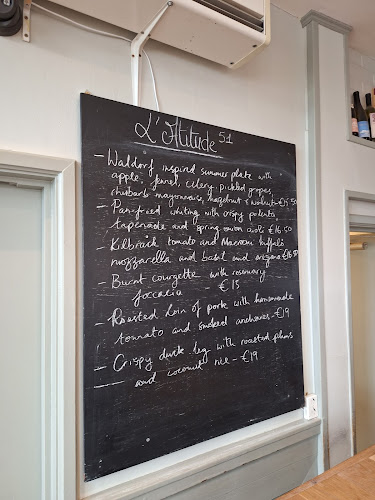 L'Atitude 51
- Waldorf inspired summer plate with
apple, fennel, celery, pickled grapes,
rhubarb mayonnaise, hazelnut & walnut - €15.50
- Pan-fried whiting with crispy potato
tapenade and spring onion aioli €16.50
- Kilbrack tomato and Macroom buffalo
mozzarella and basil and oregano €16.50
- Burnt courgette with rosemary
foccacia - €15
- Roasted loin of pork with homemade
tomato and smoked anchovies - €19
- Crispy duck leg with roasted plums
and coconut rice - €19